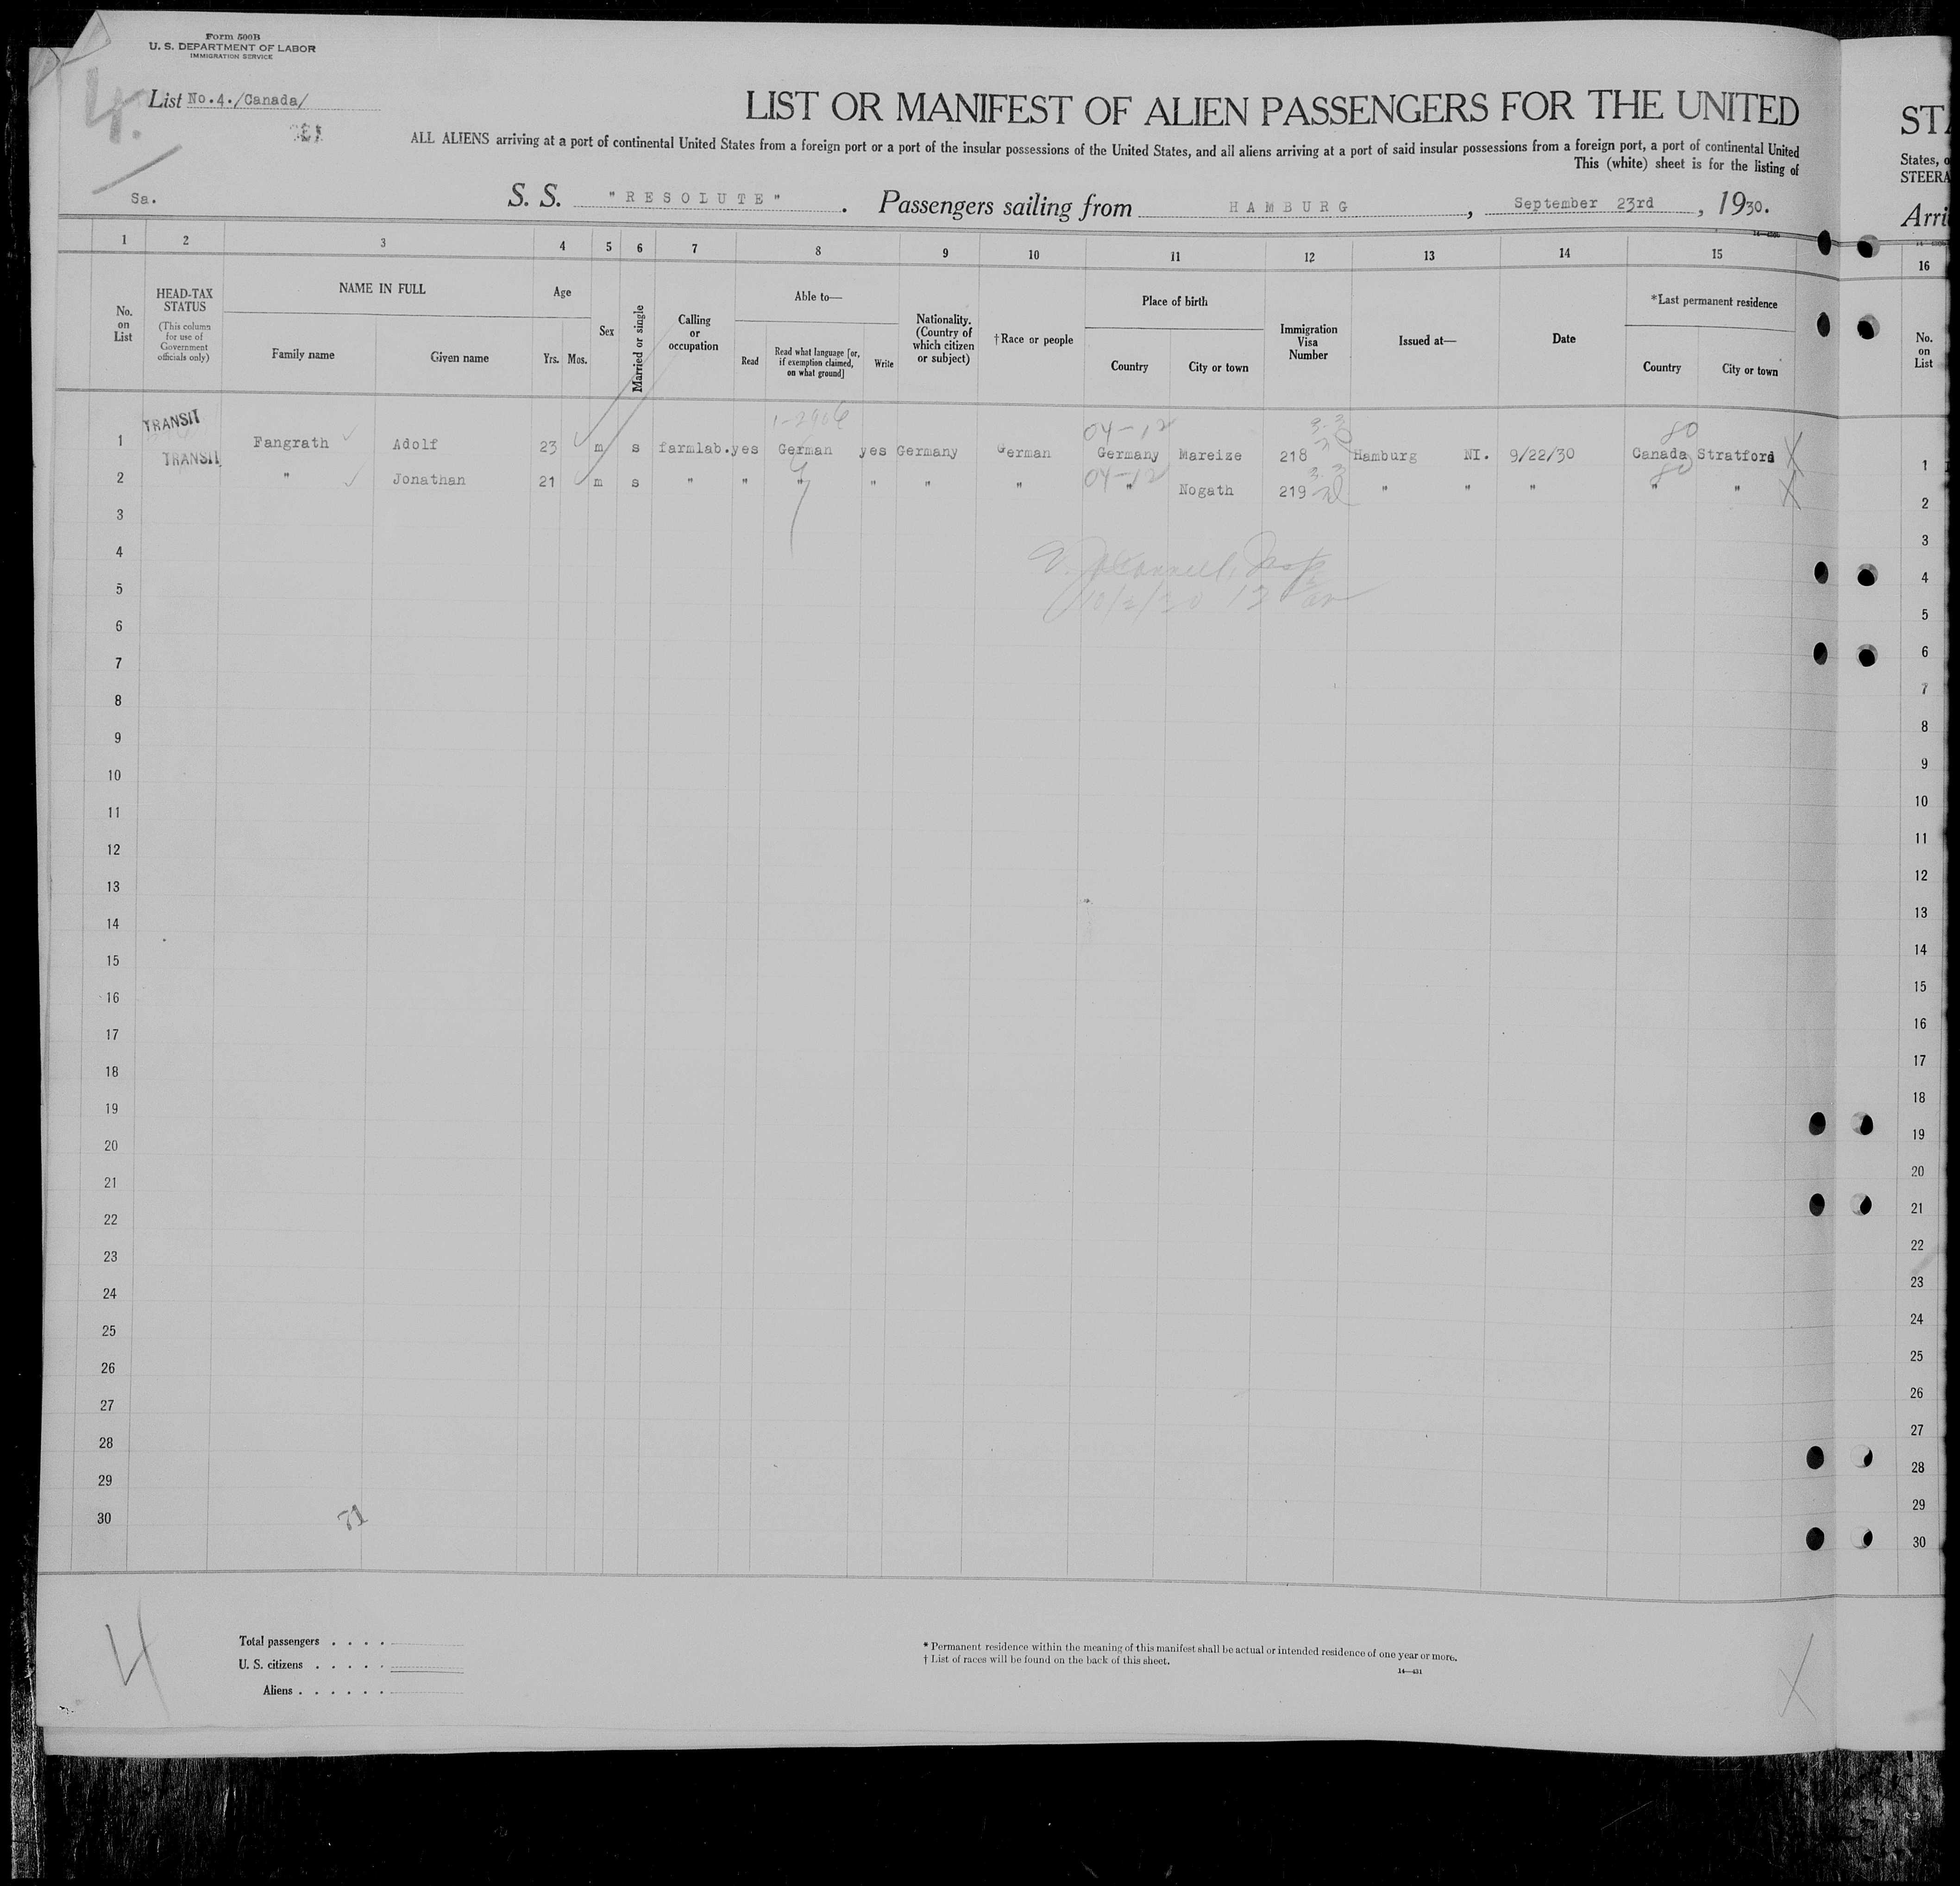 Form 500B
U. S. DEPARTMENT OF LABOR
IMMIGRATION SERVICE
4.
List No.4./Canada/
LIST OR MANIFEST OF ALIEN PASSENGERS FOR THE UNITED
ALL ALIENS arriving at a port of continental United States from a foreign port or a port of the insular possessions of the United States, and all aliens arriving at a port of said insular possessions from a foreign port, a port of continental United
This (white) sheet is for the listing of
Sa.
S. S. "RESOLUTE". Passengers sailing from HAMBURG, September 23rd, 1930.
STA
States, o
STEERA
Arri
1 2 3 4 5 6 7 8 9 10 11 12 13 14 15 16
No. on List
HEAD-TAX STATUS
(This column for use of Government officials only)
NAME IN FULL
Family name Given name
Age
Yrs. Mos.
Sex
Married or single
Calling or occupation
Able to—
Read
Read what language [or, if exemption claimed, on what ground]
Write
Nationality. (Country of which citizen or subject)
†Race or people
Place of birth
Country City or town
Immigration Visa Number
Issued at—
Date
*Last permanent residence
Country City or town
No. on List
TRANSIT
04-12 80
1 Fangrath Adolf 23 m s farmlab. yes German yes Germany German Germany Mareize 218 Hamburg NI. 9/22/30 Canada Stratford 1
TRANSIT
04-12 80
2 " Jonathan 21 m s " " " " " " " Nogath 219 " " " " " 2
3 3
4 4
5 5
6 6
7 7
8 8
9 9
10 10
11 11
12 12
13 13
14 14
15 15
16 16
17 17
18 18
19 19
20 20
21 21
22 22
23 23
24 24
25 25
26 26
27 27
28 28
29 29
30 30
71
4
Total passengers . . . .
U. S. citizens . . . . .
Aliens . . . . . .
* Permanent residence within the meaning of this manifest shall be actual or intended residence of one year or more.
† List of races will be found on the back of this sheet.
14—431